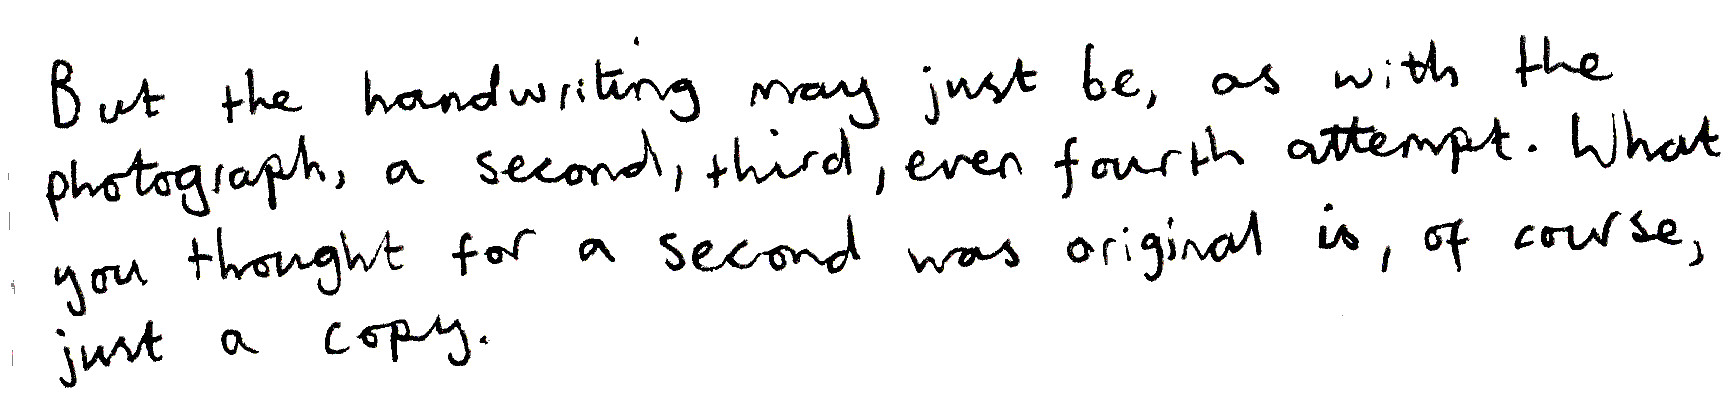 But the handwriting may just be, as with the
photograph, a second, third, even fourth attempt. What
you thought for a second was original is, of course,
just a copy.